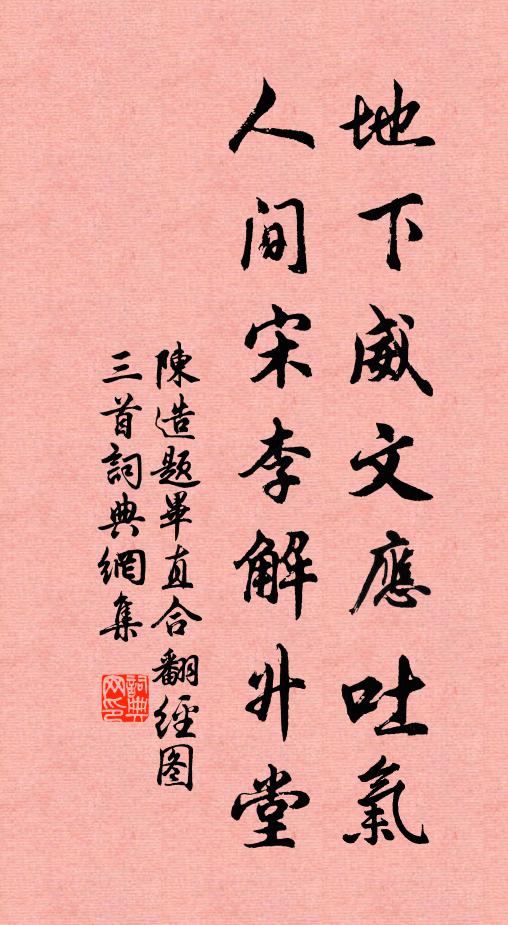 地下威文應吐氣
人间宋李解升堂
陳造題畢直合翻經图
三首詞典網集
詞典网印